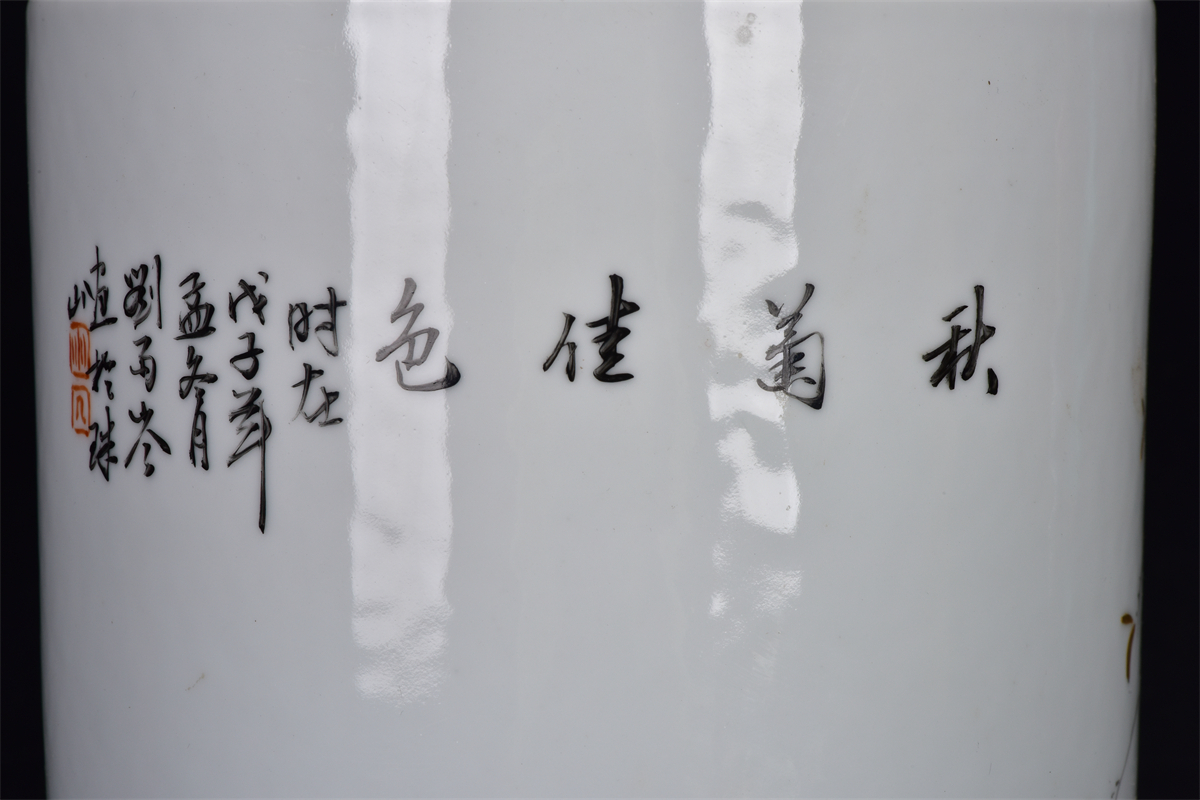 秋菊佳色
时在
戊子年
孟冬月
劉雨岑
畫於珠
山